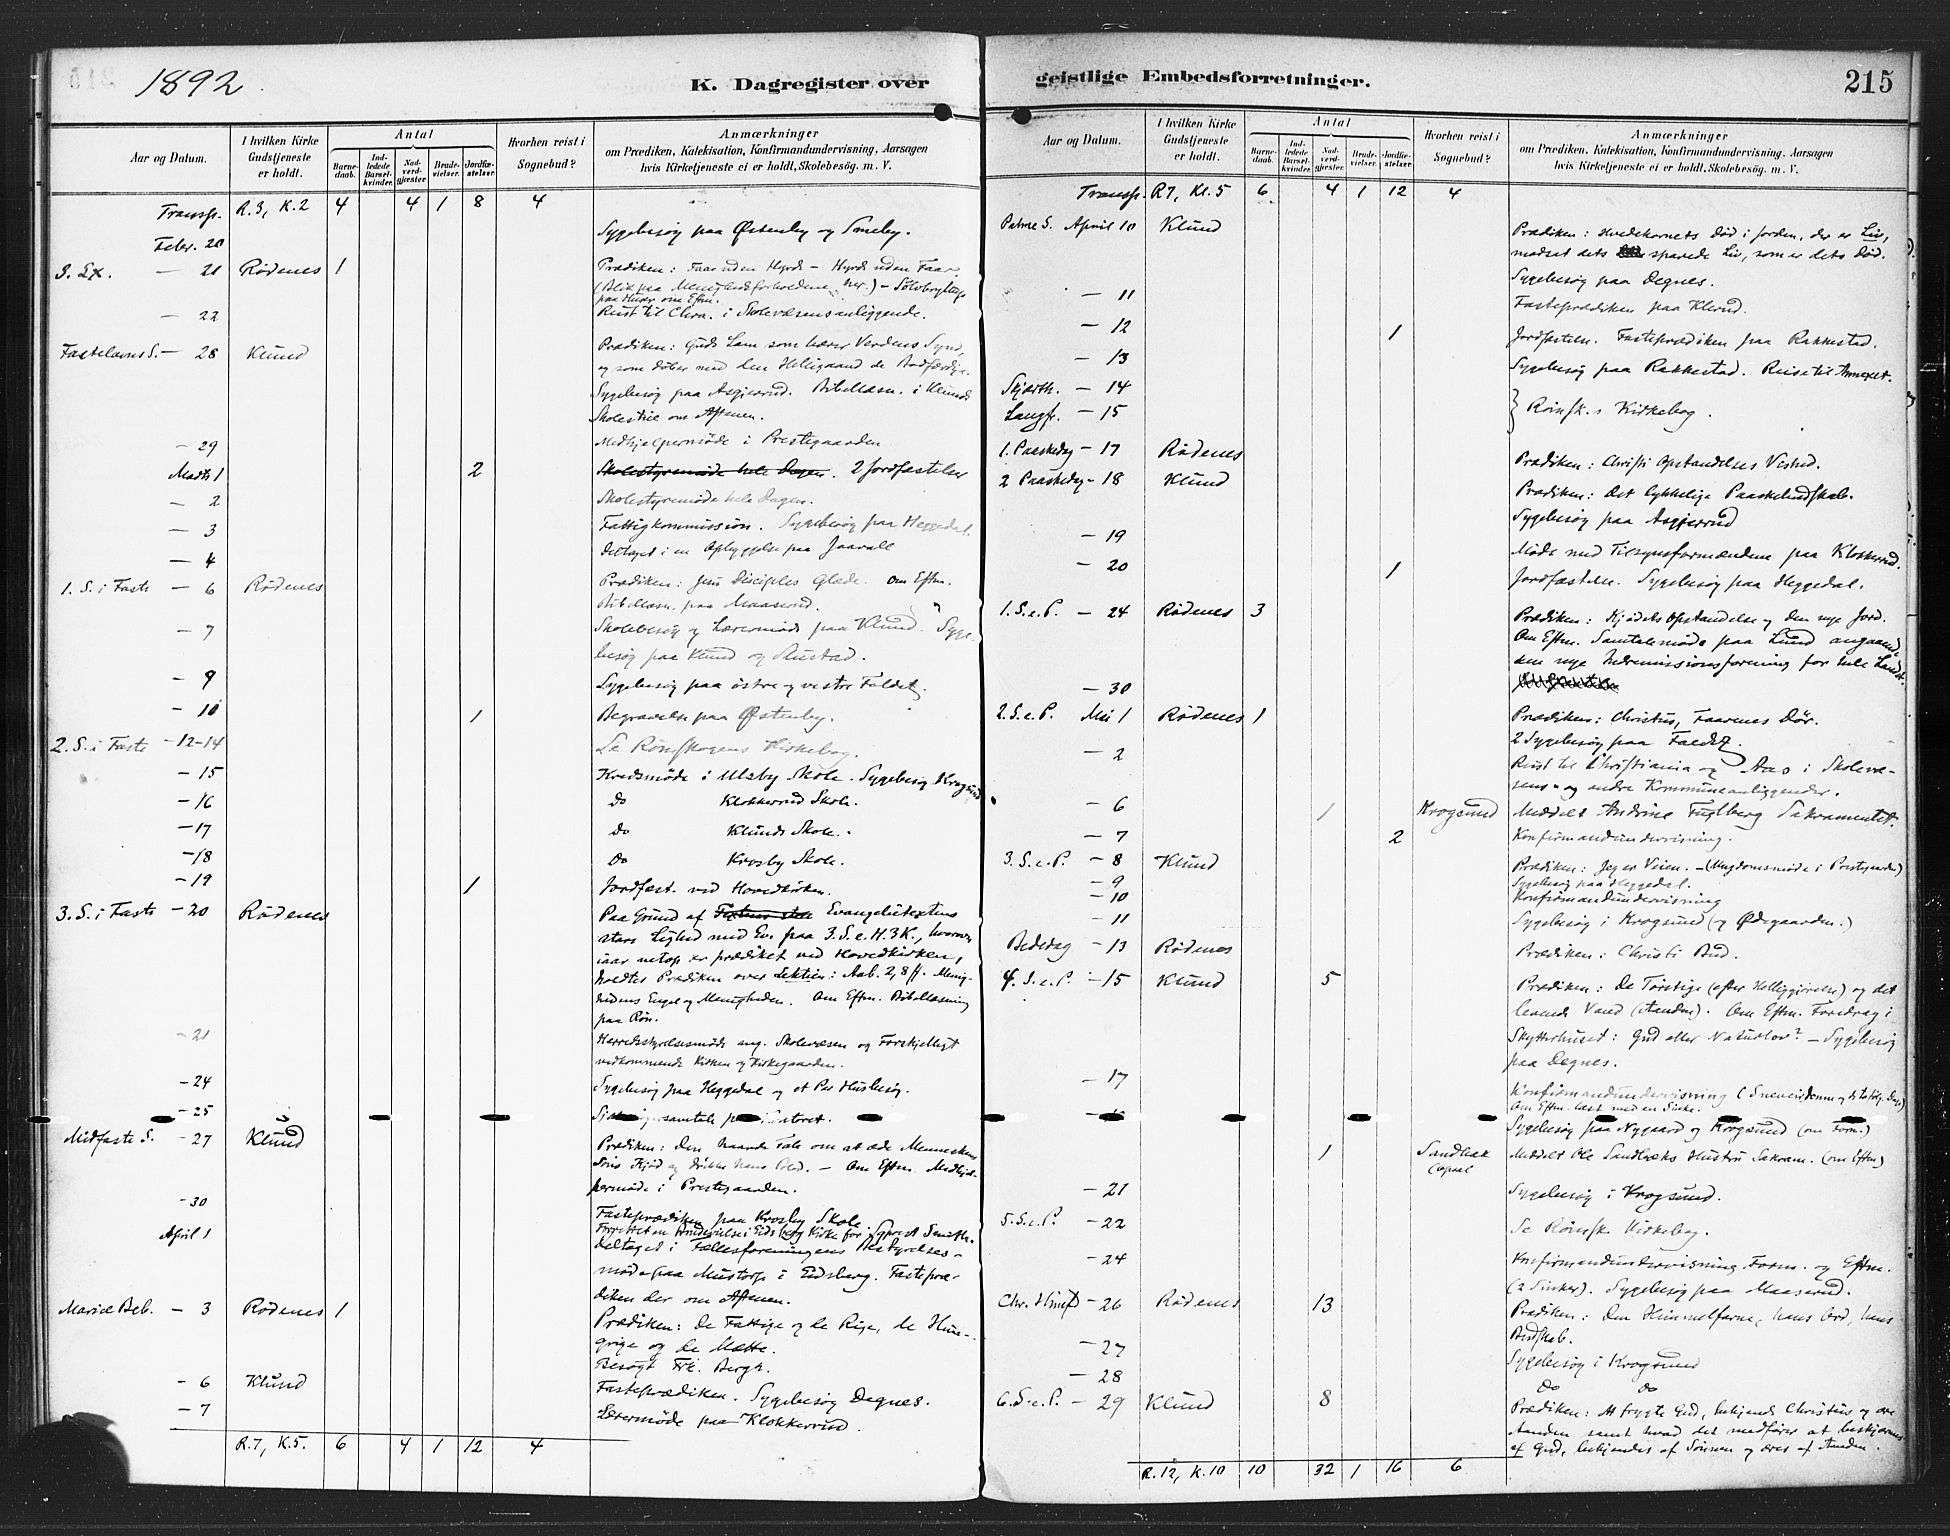 1892
K. Dagregister over
Aar og Datum.
I hvilken Kirke Gudstjeneste er holdt.
Antal
Barne-daab.
Ind-ledede Barsel-kvinder.
Nad-verd-gjæster.
Brude-vielser.
Jordfæ-stelser.
Hvorhen reist i Sognebud?
Anmærkninger
om Prædiken, Katekisation, Konfirmandundervisning, Aarsagen
hvis Kirketjeneste ei er holdt, Skolebesög. m. V.
Transp. R.3, K.2 4 4 1 8 4
Febr. 20 Sygebesøg paa Østenby og Smeby.
S. Ex. — 21 Rødenes 1 Prædiken: Faar uden Hyrde — Hyrde uden Faar
— 22 Reist til Chra. i Skolevæsensanliggende.
Fastelavns S. — 28 Klund Prædiken: Guds Lam som bærer Verdens Synd,
og som døber med den Helligaand de Bodfærdige.
Sygebesøg paa Asgjerrud. Bibellæsn. i Klunds
Skolestue om Aftenen.
— 29 Medhjelpermøde i Prestegaarden
Marts 1 2 Skolestyremøde hele Dagen. 2 Jordfæstelser
— 2 Skolestyremøde hele Dagen.
— 3 Fattigkommission. Sygebesøg paa Heggedal.
— 4 Deltaget i en Opbyggelse paa Jaavall
1. S. i Faste — 6 Rødenes Prædiken: Jesu Disciples Glæde. Om Eftm.
Bibellæsn. paa Maaserud.
— 7 Skolebesøg og Lærermøde paa Klund. Syge-
besøg paa Klund og Rustad.
— 9 Sygebesøg paa østre og vestre Faldet.
— 10 1 Begravelse paa Østenby.
2. S. i Faste — 12-14 Se Rønskogens Kirkebog.
— 15 Kredsmøde i Ulsby Skole. Sygebesøg Krogsund
— 16 Do Klokkerud Skole.
— 17 Do Klunds Skole.
— 18 Do Krosby Skole.
— 19 1 Jordfæst. ved Hovedkirken.
3. S. i Faste — 20 Rødenes Paa Grund af Evangelietextens
store Lighed med Ev. paa 3. S. e. H. 3 K., hvorover
iaar netop er prædiket ved Hovedkirken,
holdtes Prædiken over Lektien: Aab. 2, 8 ff. Menig-
hedens Engel og Menigheden. Om Eftm. Bibellæsning
paa Røn.
— 21 Herredsstyrelsesmøde ang. Skolevæsen og Forskjelligt
vedkommende Kirken og Kirkegaarden.
— 24 Sygebesøg paa Heggedal og et Par Husbesøg.
— 25 samtale
Midfaste S. — 27 Klund Prædiken: Den haarde Tale om at æde Menneskens
Søns Kjød og drikke hans Blod. — Om Eftm. Medhjel-
permøde i Prestegaarden.
— 30 Fasteprædiken paa Krosby Skole.
April 1 Forrettet en Brudevielse i Eidsberg Kirke for
Deltaget i Fællesforeningens Bestyrelses-
møde paa Mustorp i Eidsberg. Fastepræ-
diken der om Aftenen.
Mariæ Beb. — 3 Rødenes 1 Prædiken: De Fattige og de Rige, de Hun-
grige og de Mætte.
Besøgt Frk. Bergh.
— 6 Klund Fasteprædiken. Sygebesøg Degnes.
— 7 Lærermøde paa Klokkerud.
R.7, K.5. 6 4 1 12 4
geistlige Embedsforretninger.
215
Aar og Datum.
I hvilken Kirke Gudstjeneste er holdt.
Antal
Barne-daab.
Ind-ledede Barsel-kvinder.
Nad-verd-gjæster.
Brude-vielser.
Jordfæ-stelser.
Hvorhen reist i Sognebud?
Anmærkninger
om Prædiken, Katekisation, Konfirmandundervisning, Aarsagen
hvis Kirketjeneste ei er holdt, Skolebesög. m. V.
Transp. R7, Kl. 5 6 4 1 12 4
Palme S. April 10 Klund Prædiken: Hvedekornets Død i Jorden, der er Liv,
modsat dets sparede Liv, som er dets Død.
Sygebesøg paa Degnes.
— 11 Fasteprædiken paa Klund.
— 12 1 Jordfæstelse. Fasteprædiken paa Rakkestad.
— 13 Sygebesøg paa Rakkestad. Reise til Annexet.
Skjærth. — 14
Langfr. — 15 Rønsk.s Kirkebog.
1. Paaskedag — 17 Rødenes Prædiken: Christi Opstandelses Vished.
2 Paaskedag — 18 Klund Prædiken: Det lykkelige Paaskebudskab.
Sygebesøg paa Asgjerrud
— 19 Møde med Tilsynsformændene paa Klokkerud.
— 20 1 Jordfæstelse. Sygebesøg paa Heggedal.
1. S. e. P. — 24 Rødenes 3 Prædiken: Kjødets Opstandelse og den nye Jord.
Om Eftm. Samtalemøde paa Lund angaaende
den nye Indremissionsforening for hele Landet.
— 30
2. S. e. P. Mai 1 Rødenes 1 Prædiken: Christus, Faarenes Dør.
2 Sygebesøg paa Faldet.
— 2 Reist til Christiania og Aas i Skolevæ-
sens- og andre Kommuneanliggender.
— 6 1 Krogsund Meddelt Andrine Fuglberg Sakramentet.
— 7 2 Konfirmandundervisning.
3. S. e. P. — 8 Klund Prædiken: Jeg er Veien. — (Ungdomsmøde i Prestegaarden)
— 9 Sygebesøg paa Heggedal.
— 10 Konfirmandundervisning
— 11 Sygebesøg i Krogsund (og Ødegaarden.)
Bededag — 13 Rødenes Prædiken: Christi Bud.
4. S. e. P. — 15 Klund 5 Prædiken: De Tørstige (efter Helliggjørelse) og det
levende Vand (Aanden). Om Eftm. Foredrag i
Skytterhuset: Gud eller Naturlov? — Sygebesøg
paa Degnes.
— 17 Konfirmandundervisning
Om Eftm. læst med en Sinke.
Sygebesøg paa Nygaard og Krogsund (om Form.)
1 Sandbæk Meddelt Ole Sandbæks Hustru Sakram. (om Eftm)
— 21 Sygebesøg i Krogsund.
5. S. e. P. — 22 Se Rønsk. Kirkebog.
— 24 Konfirmandundervisning Form. og Eftm.
(2 Sinker). Sygebesøg paa Maaserud.
Chr. Himelf — 26 Rødenes 13 Prædiken: Den Himmelfarne, hans Ord, hans
Budskab.
— 27 Sygebesøg i Krogsund
— 28 Do Do
6. S. e. P. — 29 Klund 8 Prædiken: At frygte Gud, bekjende Christus og ære
Aanden samt hvad det medfører at beskjermes
af Gud, bekjendes af Sønnen og æres af Aanden.
R.12, K.10 10 32 1 16 6